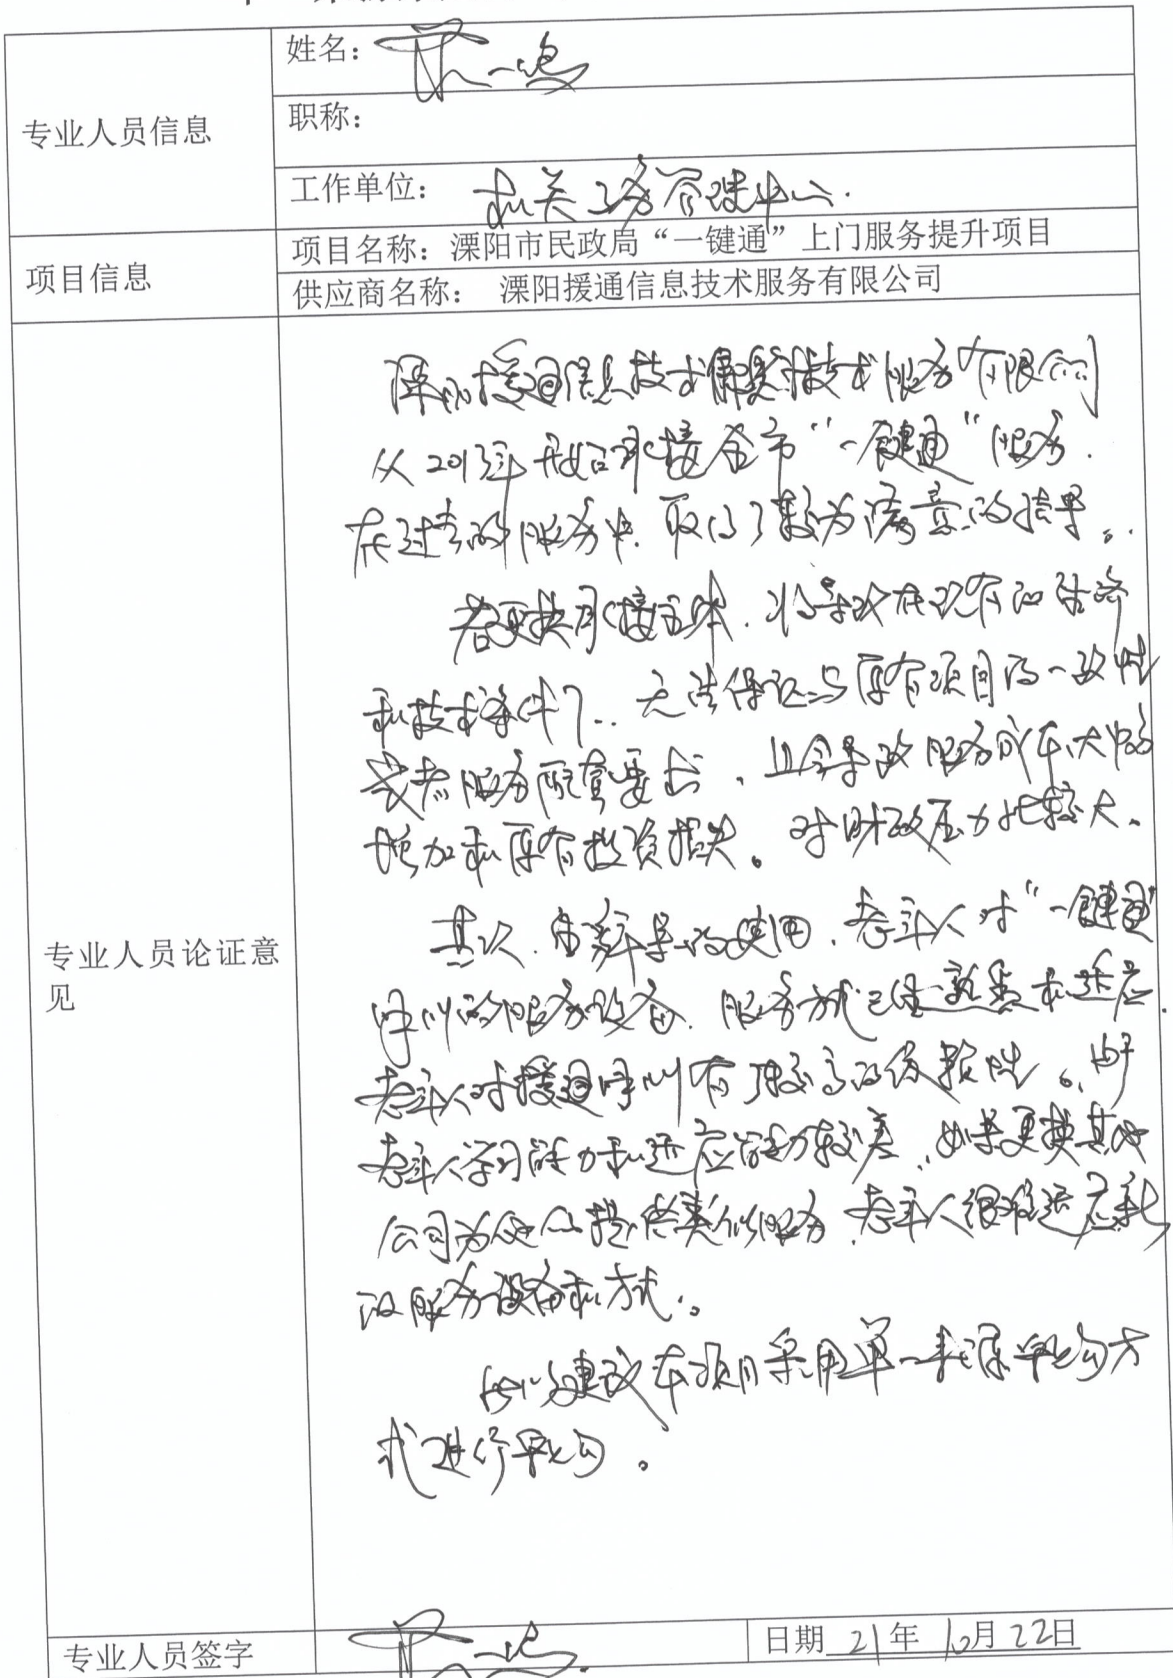 姓名：一鸣
职称：
专业人员信息
工作单位：机关事务管理中心.
项目信息
项目名称：溧阳市民政局“一键通”上门服务提升项目
供应商名称： 溧阳援通信息技术服务有限公司
溧阳援通信息技术技术服务有限公司
从2013年开始承接全市“一键通”服务.
在过去的服务中.取得了较为满意的结果。
若更换承接主体.将导致在现有的经济
和技术条件下..无法保证与原有项目的一致性
或者服务配套要求，且会导致服务成本大幅
增加和原有投资损失。对财政压力比较大.
其次.由于多年的使用.老年人对“一键通”
呼叫的服务设备.服务方式已经熟悉和适应.
老年人对援通呼叫有了较高的依赖性。由于
老年人学习能力和适应能力较差，如果更换其他
公司为他们提供类似服务.老年人很难适应新
的服务设备和方式。
专业人员论证意
见
所以建议本项目采用单一来源采购方
式进行采购。
专业人员签字
一鸣
日期 21年 10月22日